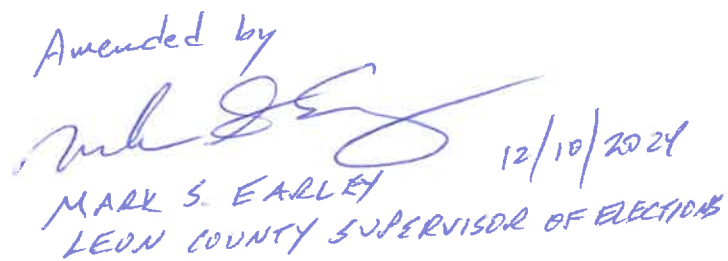 Amended by
Mark S Earley
12/10/2024
MARK S. EARLEY
LEON COUNTY SUPERVISOR OF ELECTIONS